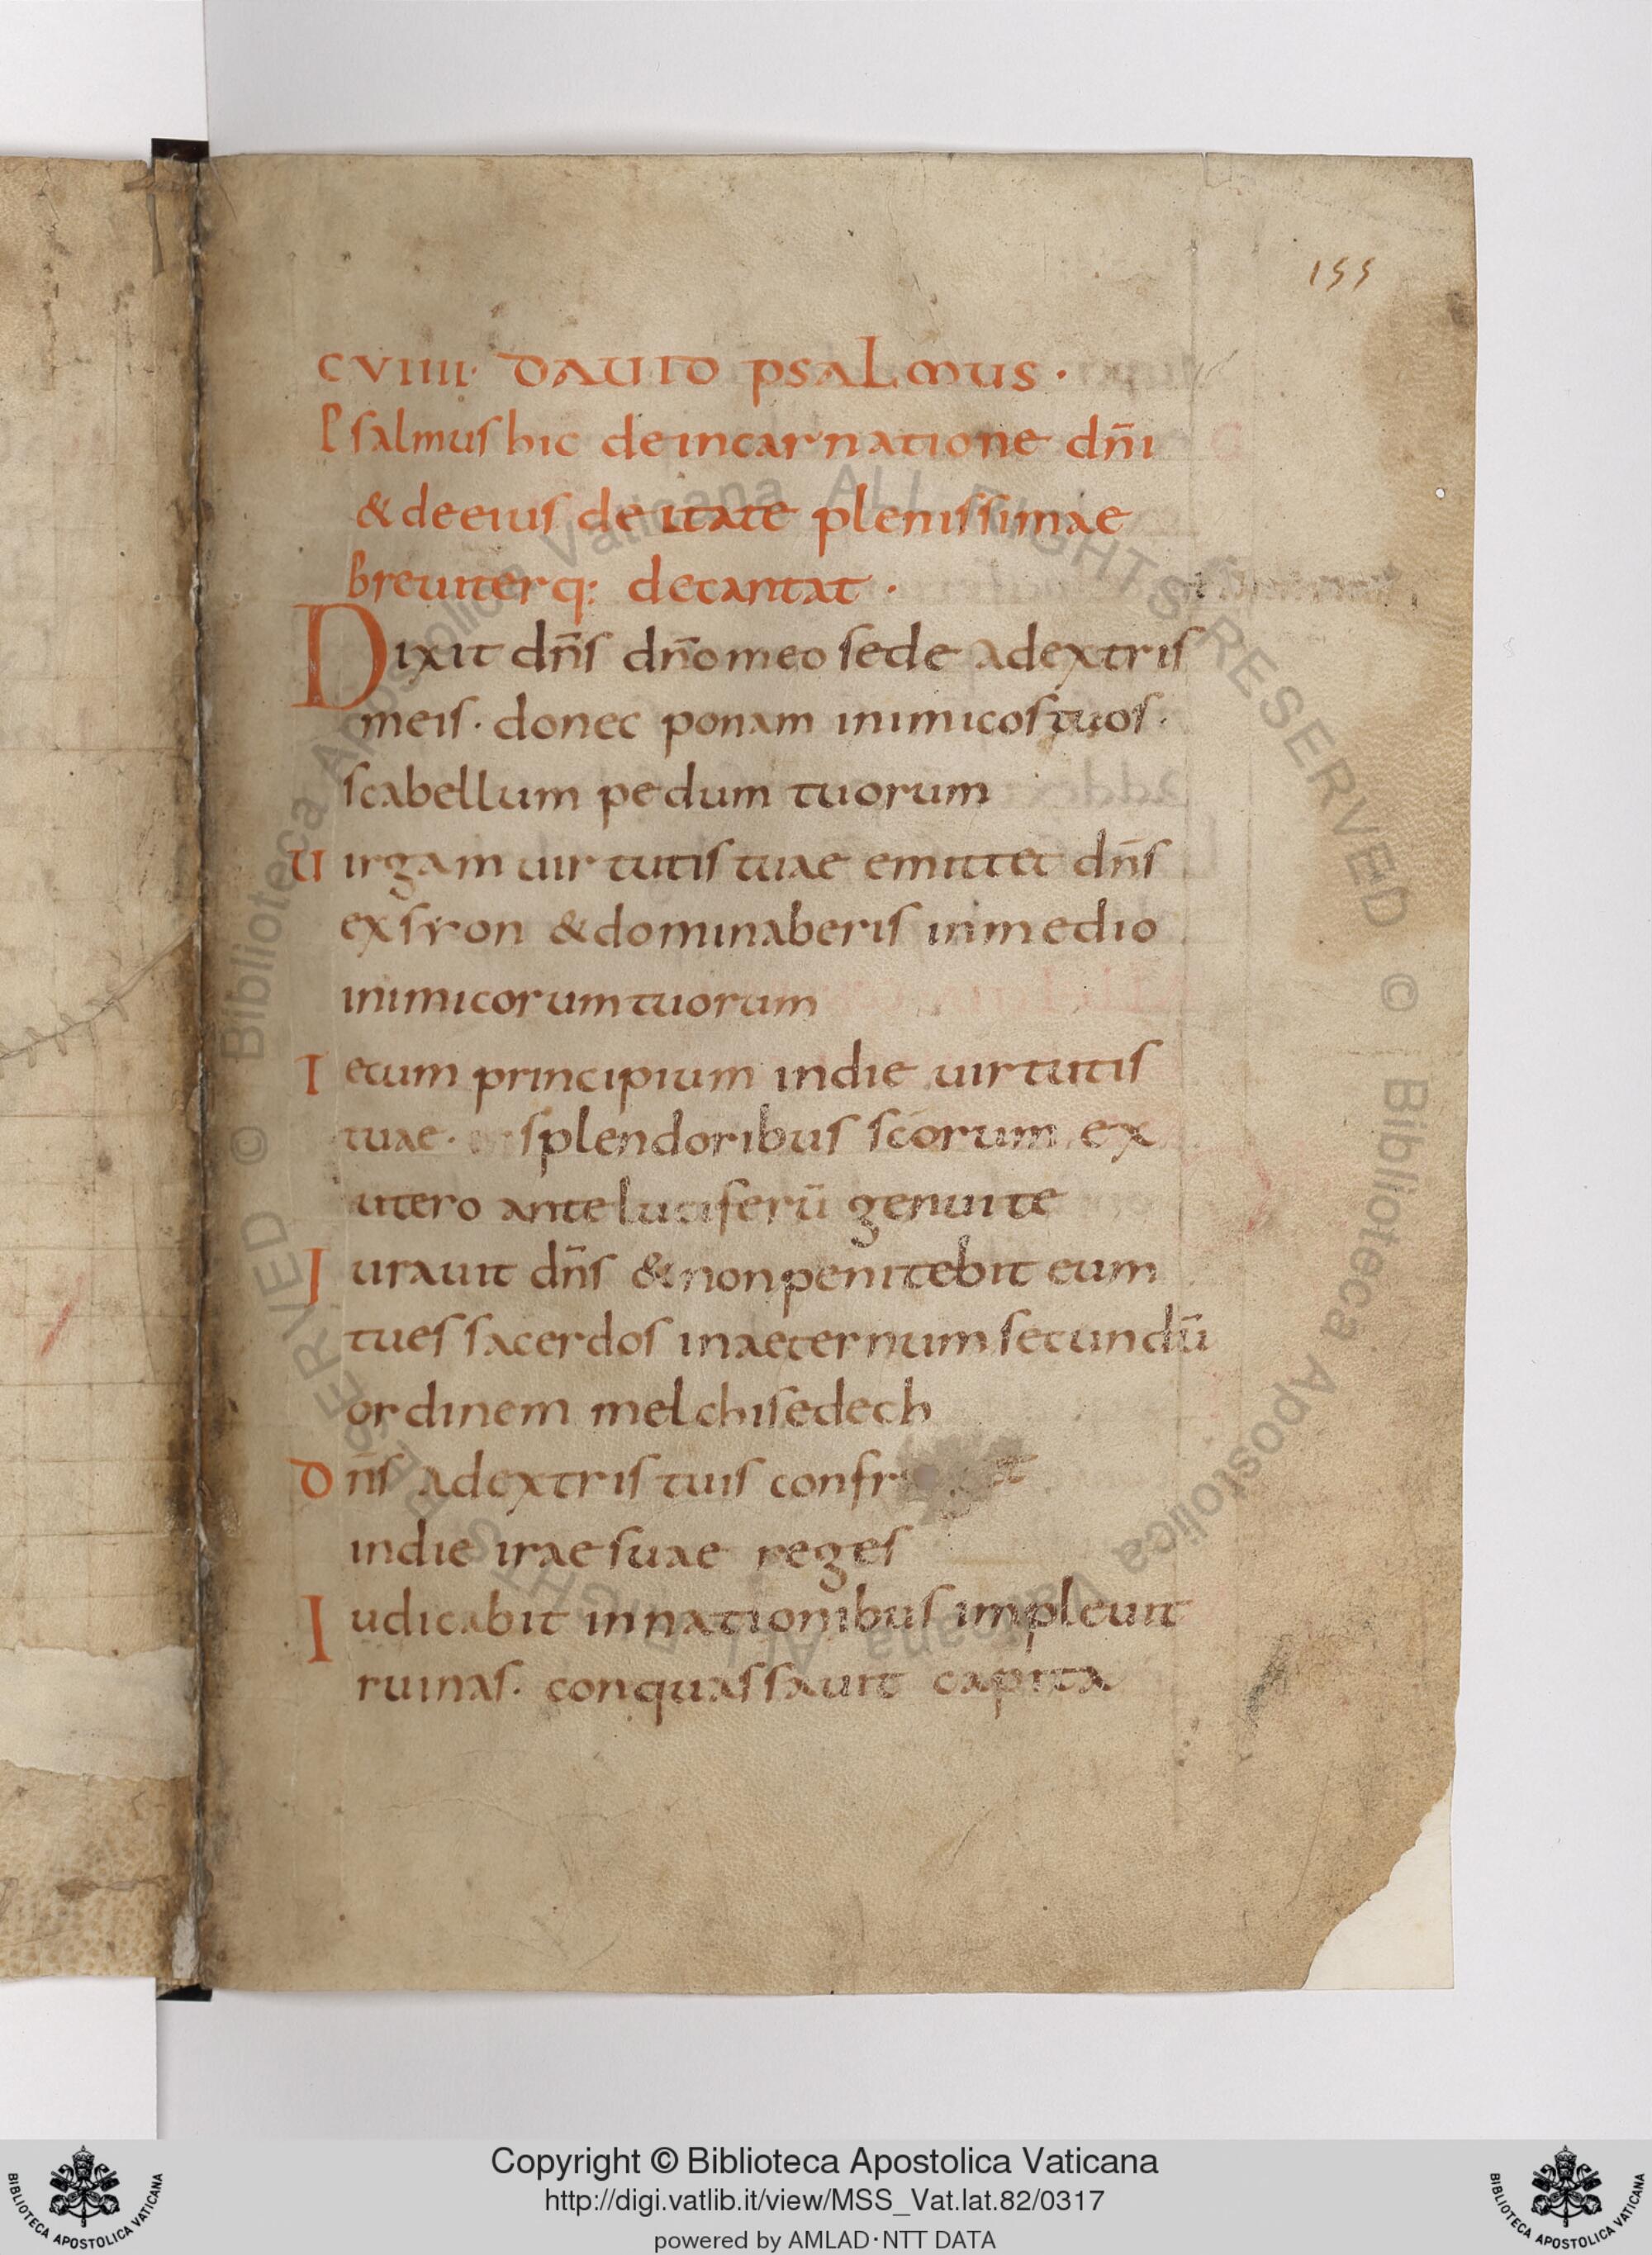 155
CVIIII· DAUID PSALMUS·
Psalmus hic de incarnatione dn̄i
& de eius deitate plenissimae
breuiterq: decantat·
Dixit dn̄s dn̄o meo sede adextris
meis· donec ponam inimicos tuos·
scabellum pedum tuorum
Uirgam uirtutis tuae emittet dn̄s
ex syon & dominaberis in medio
inimicorum tuorum
Tecum principium indie uirtutis
tuae· splendoribus sc̄orum ex
utero ante luciferū genui te
Iurauit dn̄s & non penitebit eum
tu es sacerdos in aeternum secundū
ordinem melchisedech
Dn̄s adextris tuis confr
indie irae suae reges
Iudicabit in nationibus impleuit
ruinas· conquassauit capita
© Biblioteca Apostolica Vaticana ALL RIGHTS RESERVED
© Biblioteca Apostolica Vaticana ALL RIGHTS RESERVED
Copyright © Biblioteca Apostolica Vaticana
http://digi.vatlib.it/view/MSS_Vat.lat.82/0317
powered by AMLAD·NTT DATA
BIBLIOTECA APOSTOLICA VATICANA
BIBLIOTECA APOSTOLICA VATICANA